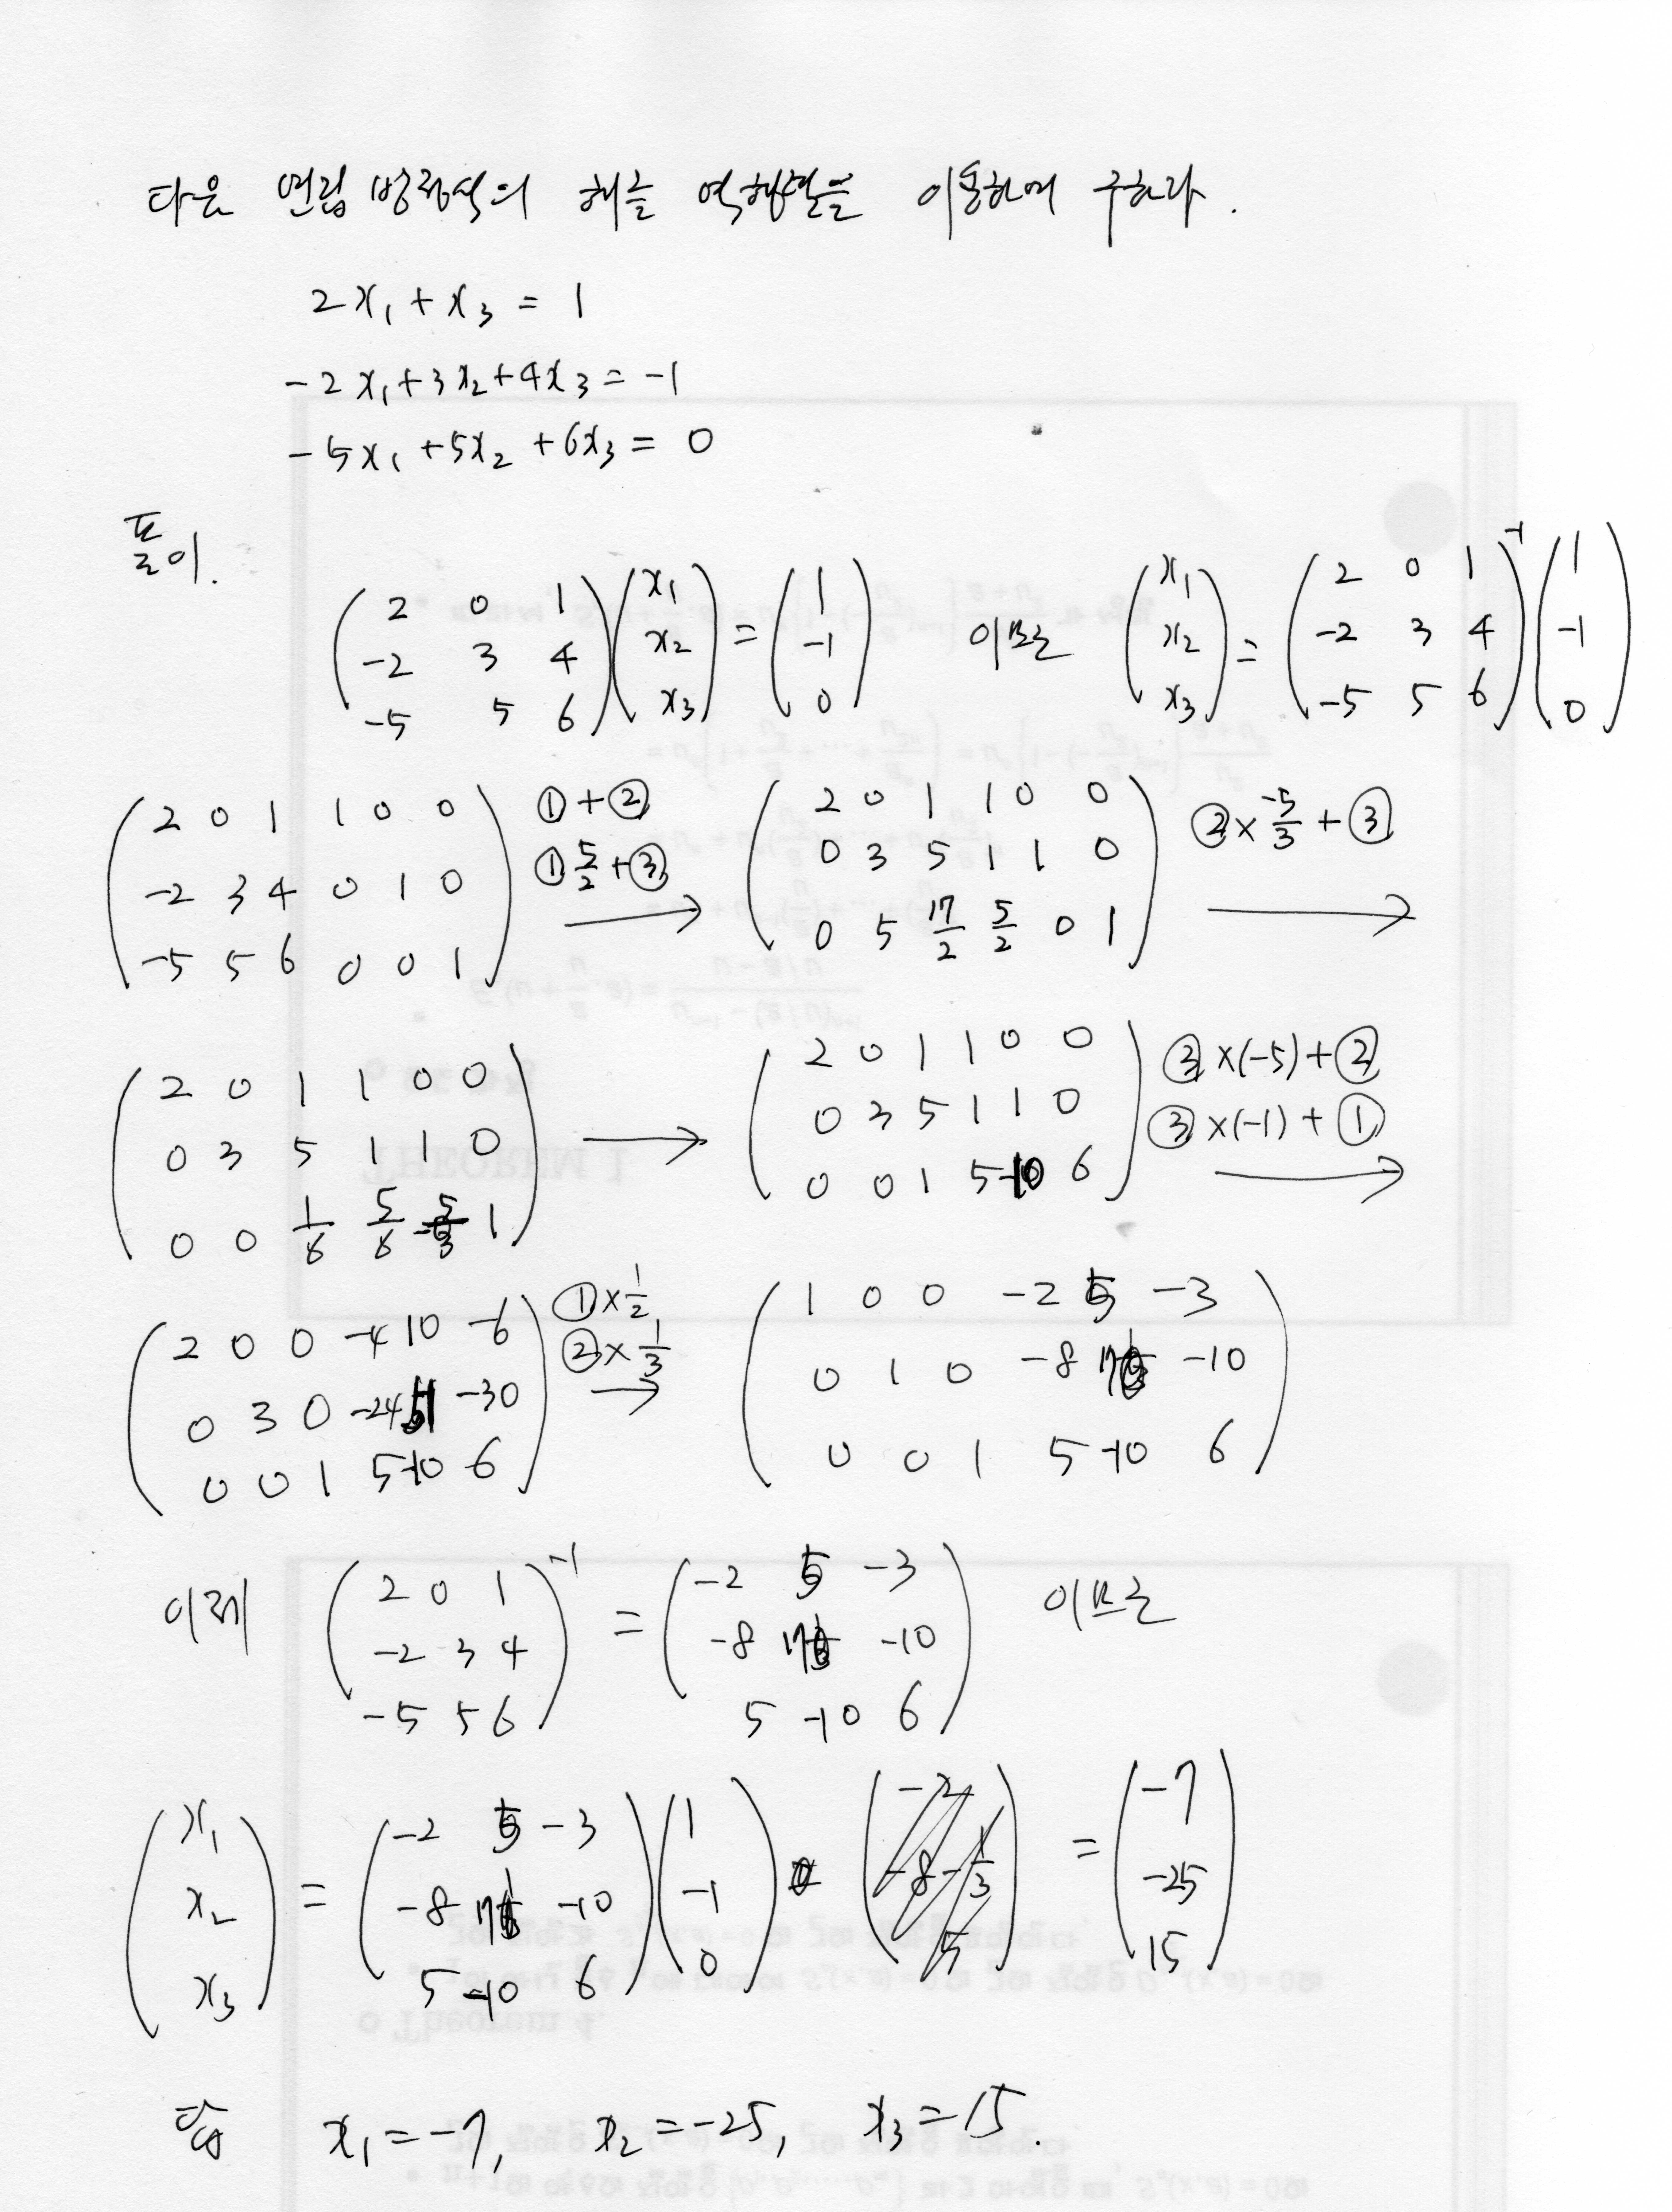 다음 연립 방정식의 해를 역행렬을 이용하여 구하라.
2x₁ + x₃ = 1
-2x₁ + 3x₂ + 4x₃ = -1
-5x₁ + 5x₂ + 6x₃ = 0
풀이.
(2 0 1 / -2 3 4 / -5 5 6)(x₁ / x₂ / x₃) = (1 / -1 / 0) 이므로 (x₁ / x₂ / x₃) = (2 0 1 / -2 3 4 / -5 5 6)⁻¹(1 / -1 / 0)
(2 0 1 1 0 0 / -2 3 4 0 1 0 / -5 5 6 0 0 1) ①+② ①5/2+③ → (2 0 1 1 0 0 / 0 3 5 1 1 0 / 0 5 17/2 5/2 0 1) ②×-5/3+③ →
(2 0 1 1 0 0 / 0 3 5 1 1 0 / 0 0 1/6 5/6 -5/3 1) → (2 0 1 1 0 0 / 0 3 5 1 1 0 / 0 0 1 5 -10 6) ③×(-5)+② ③×(-1)+① →
(2 0 0 -4 10 -6 / 0 3 0 -24 51 -30 / 0 0 1 5 -10 6) ①×1/2 ②×1/3 → (1 0 0 -2 5 -3 / 0 1 0 -8 17 -10 / 0 0 1 5 -10 6)
이제 (2 0 1 / -2 3 4 / -5 5 6)⁻¹ = (-2 5 -3 / -8 17 -10 / 5 -10 6) 이므로
(x₁ / x₂ / x₃) = (-2 5 -3 / -8 17 -10 / 5 -10 6)(1 / -1 / 0) = (-7 / -25 / 15)
답 x₁ = -7, x₂ = -25, x₃ = 15.